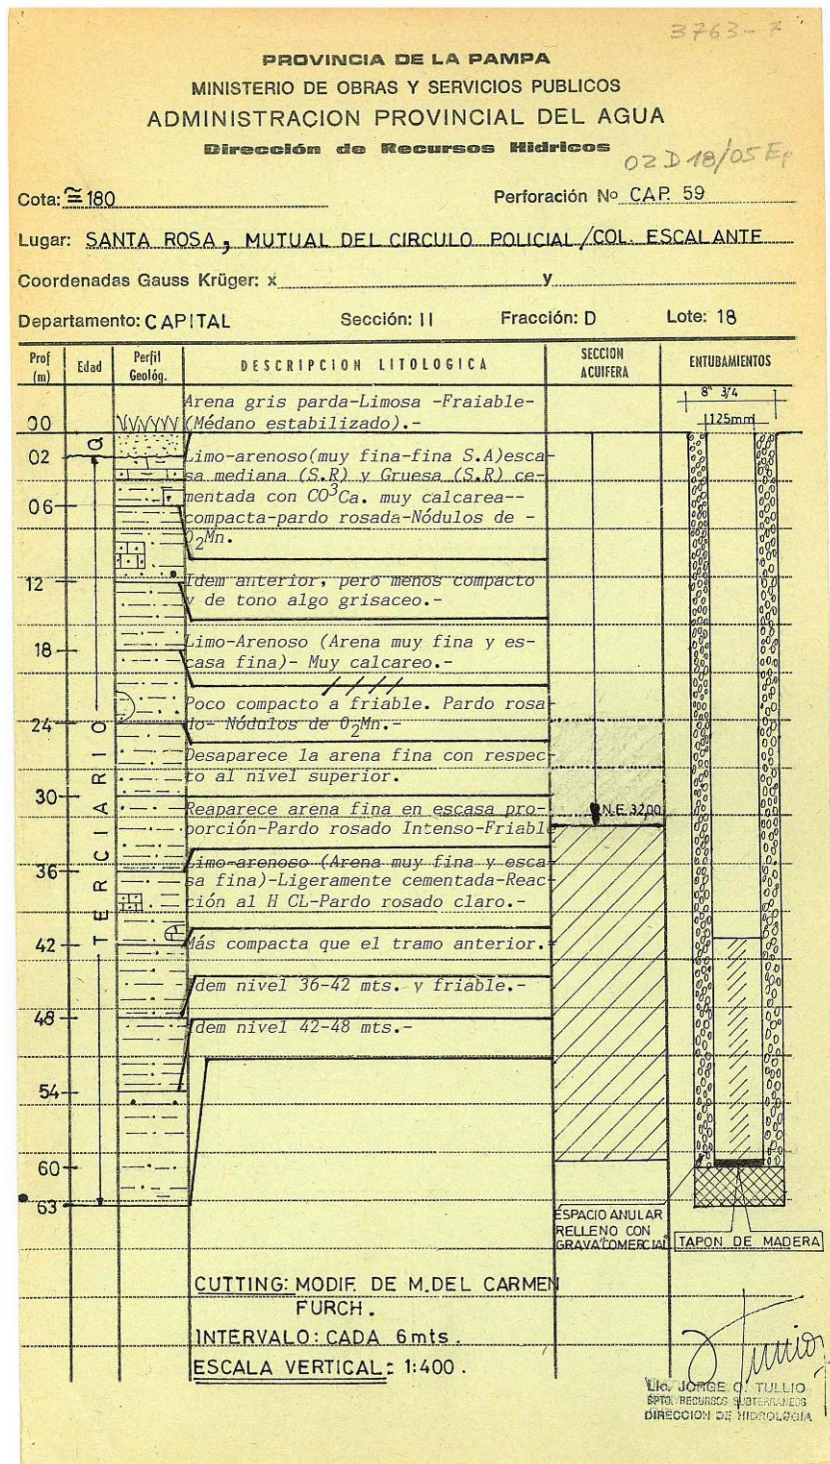 3763-7
PROVINCIA DE LA PAMPA
MINISTERIO DE OBRAS Y SERVICIOS PUBLICOS
ADMINISTRACION PROVINCIAL DEL AGUA
Dirección de Recursos Hidricos
02 D 18/05 Ep
Cota: ≅180 Perforación Nº CAP. 59
Lugar: SANTA ROSA, MUTUAL DEL CIRCULO POLICIAL/COL. ESCALANTE
Coordenadas Gauss Krüger: x y
Departamento: CAPITAL Sección: II Fracción: D Lote: 18
Prof (m) Edad Perfil Geológ. DESCRIPCION LITOLOGICA SECCION ACUIFERA ENTUBAMIENTOS
8" 3/4
125mm
00
02
06
12
18
24
30
36
42
48
54
60
63
Q
TERCIARIO
Arena gris parda-Limosa -Fraiable-
(Médano estabilizado).-
Limo-arenoso(muy fina-fina S.A)esca-
sa mediana (S.R) y Gruesa (S.R) ce-
mentada con CO3Ca. muy calcarea--
compacta-pardo rosada-Nódulos de -
O2Mn.
Idem anterior, pero menos compacto
y de tono algo grisaceo.-
Limo-Arenoso (Arena muy fina y es-
casa fina)- Muy calcareo.-
////
Poco compacto a friable. Pardo rosa-
do- Nódulos de O2Mn.-
Desaparece la arena fina con respec-
to al nivel superior.
Reaparece arena fina en escasa pro-
porción-Pardo rosado Intenso-Friable
Limo-arenoso (Arena muy fina y esca-
sa fina)-Ligeramente cementada-Reac-
ción al H CL-Pardo rosado claro.-
Más compacta que el tramo anterior.-
Idem nivel 36-42 mts. y friable.-
Idem nivel 42-48 mts.-
N.E. 32,00
ESPACIO ANULAR
RELLENO CON
GRAVA COMERCIAL
TAPON DE MADERA
CUTTING: MODIF. DE M. DEL CARMEN
FURCH.
INTERVALO: CADA 6mts.
ESCALA VERTICAL: 1:400.
Lic. JORGE O. TULLIO
DPTO. RECURSOS SUBTERRANEOS
DIRECCION DE HIDROLOGIA